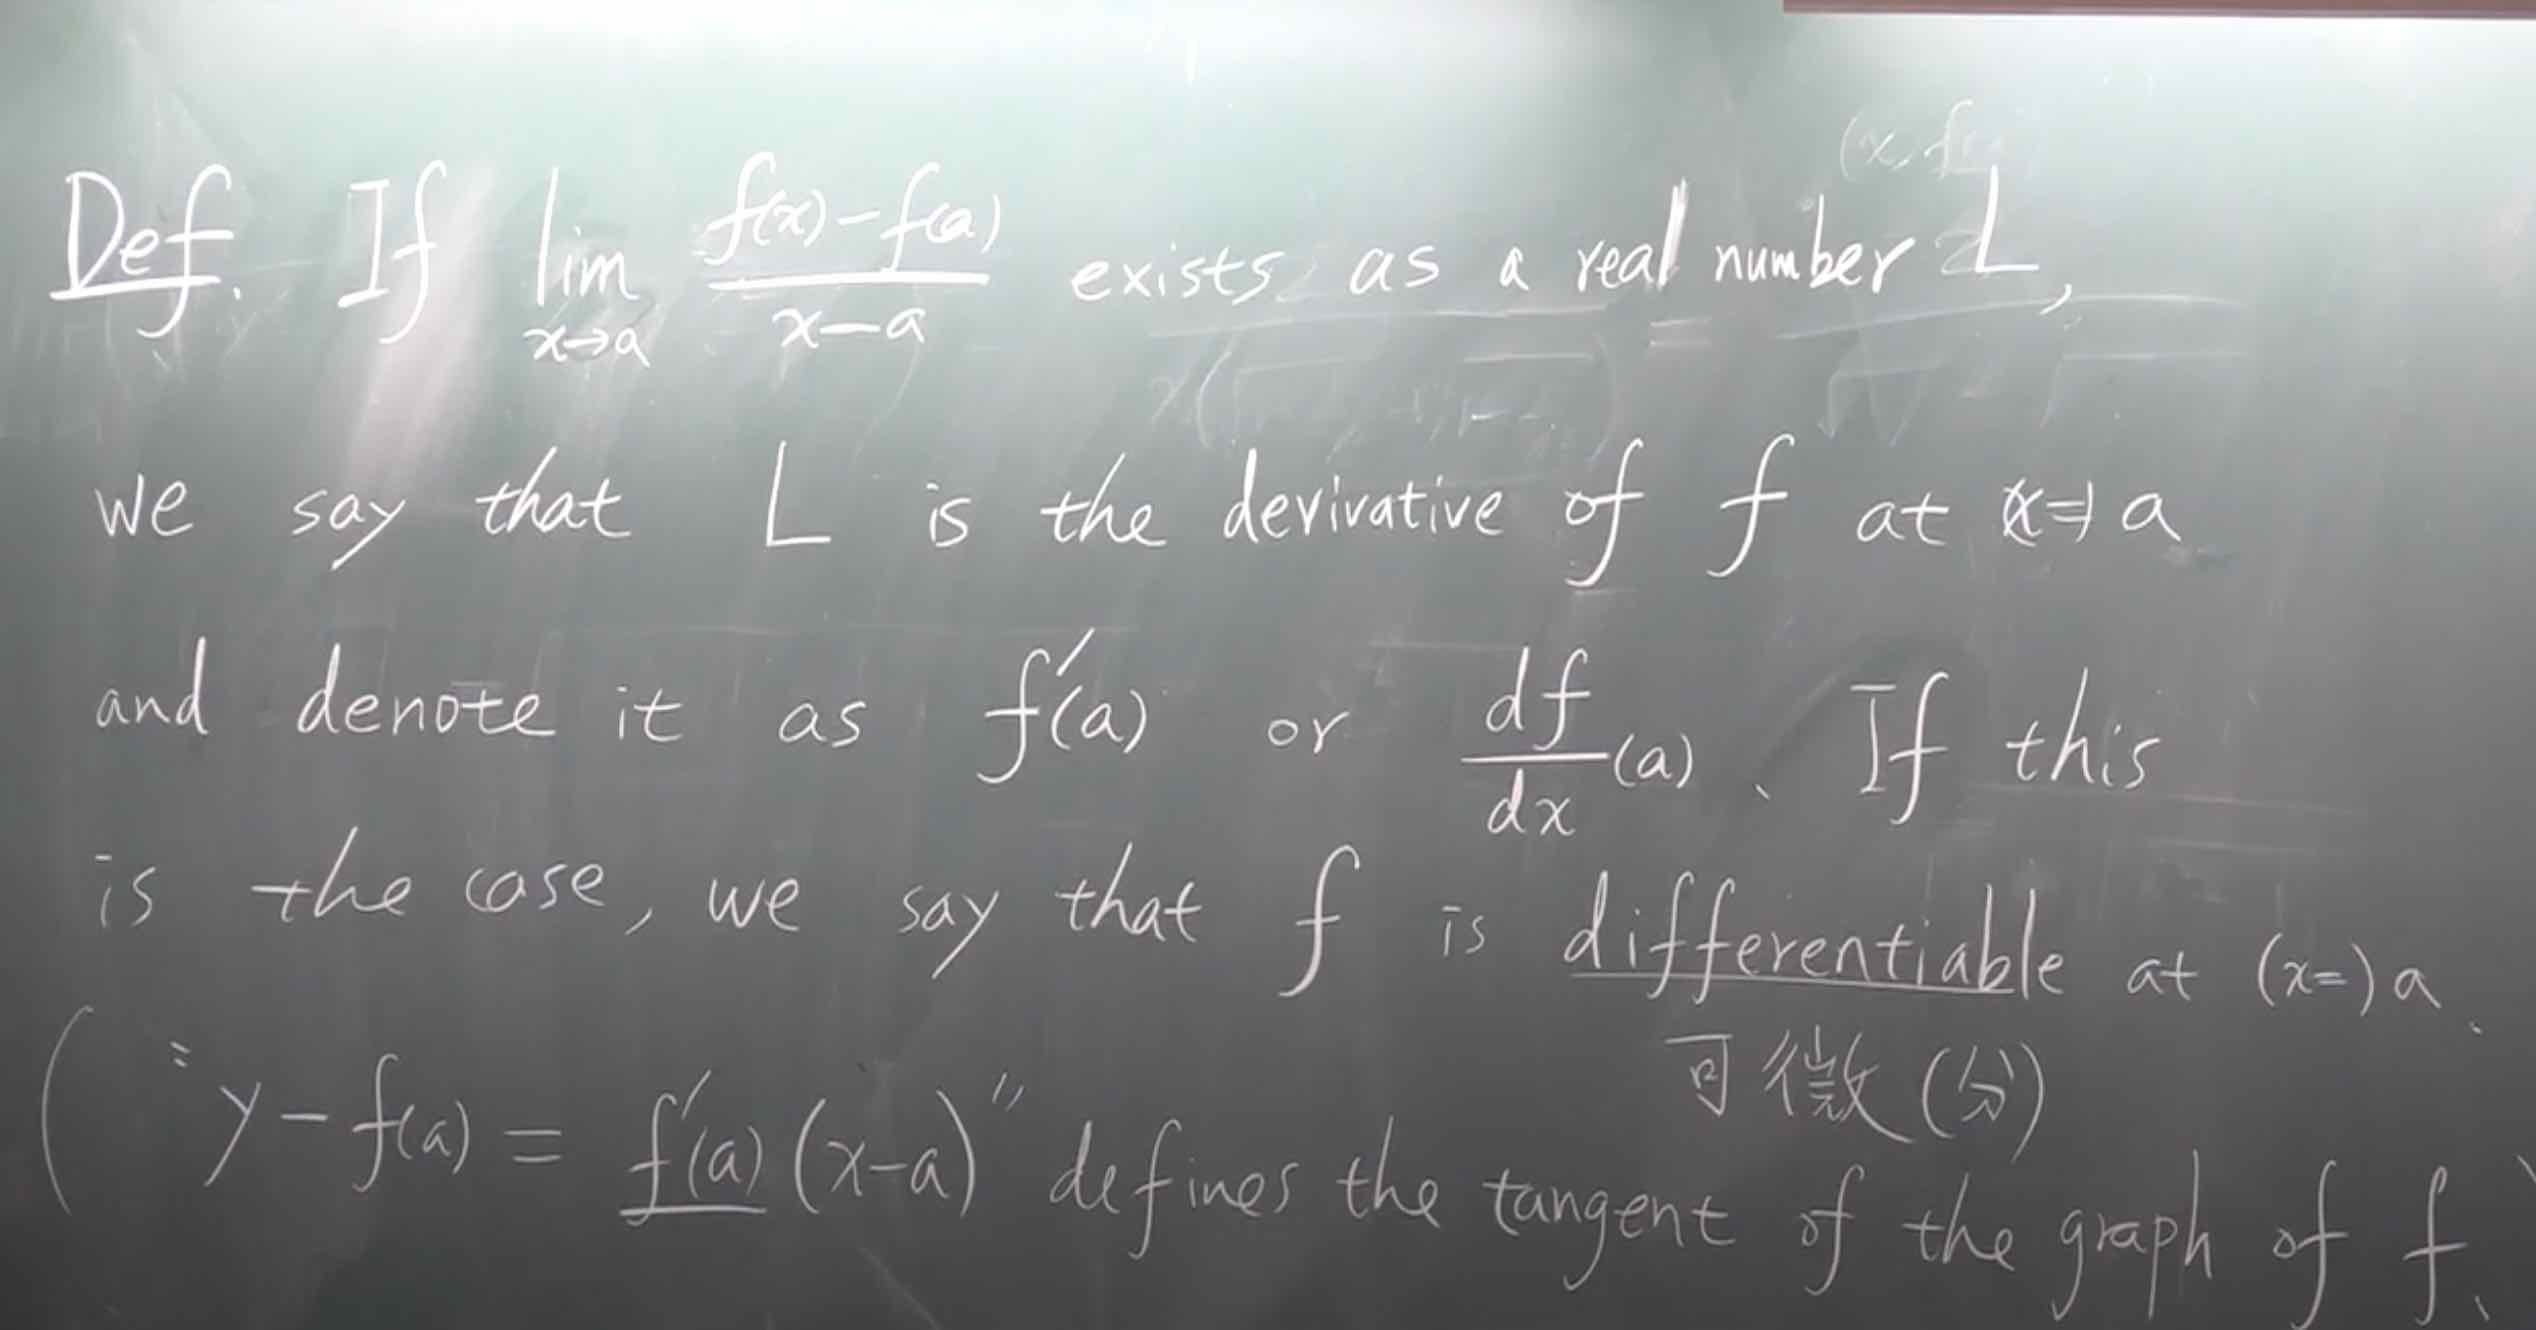 Def. If lim_{x→a} (f(x)-f(a))/(x-a) exists as a real number L,
we say that L is the derivative of f at (x=) a
and denote it as f'(a) or df/dx (a). If this
is the case, we say that f is differentiable at (x=) a.
可微(分)
( "y-f(a) = f'(a) (x-a)" defines the tangent of the graph of f.)